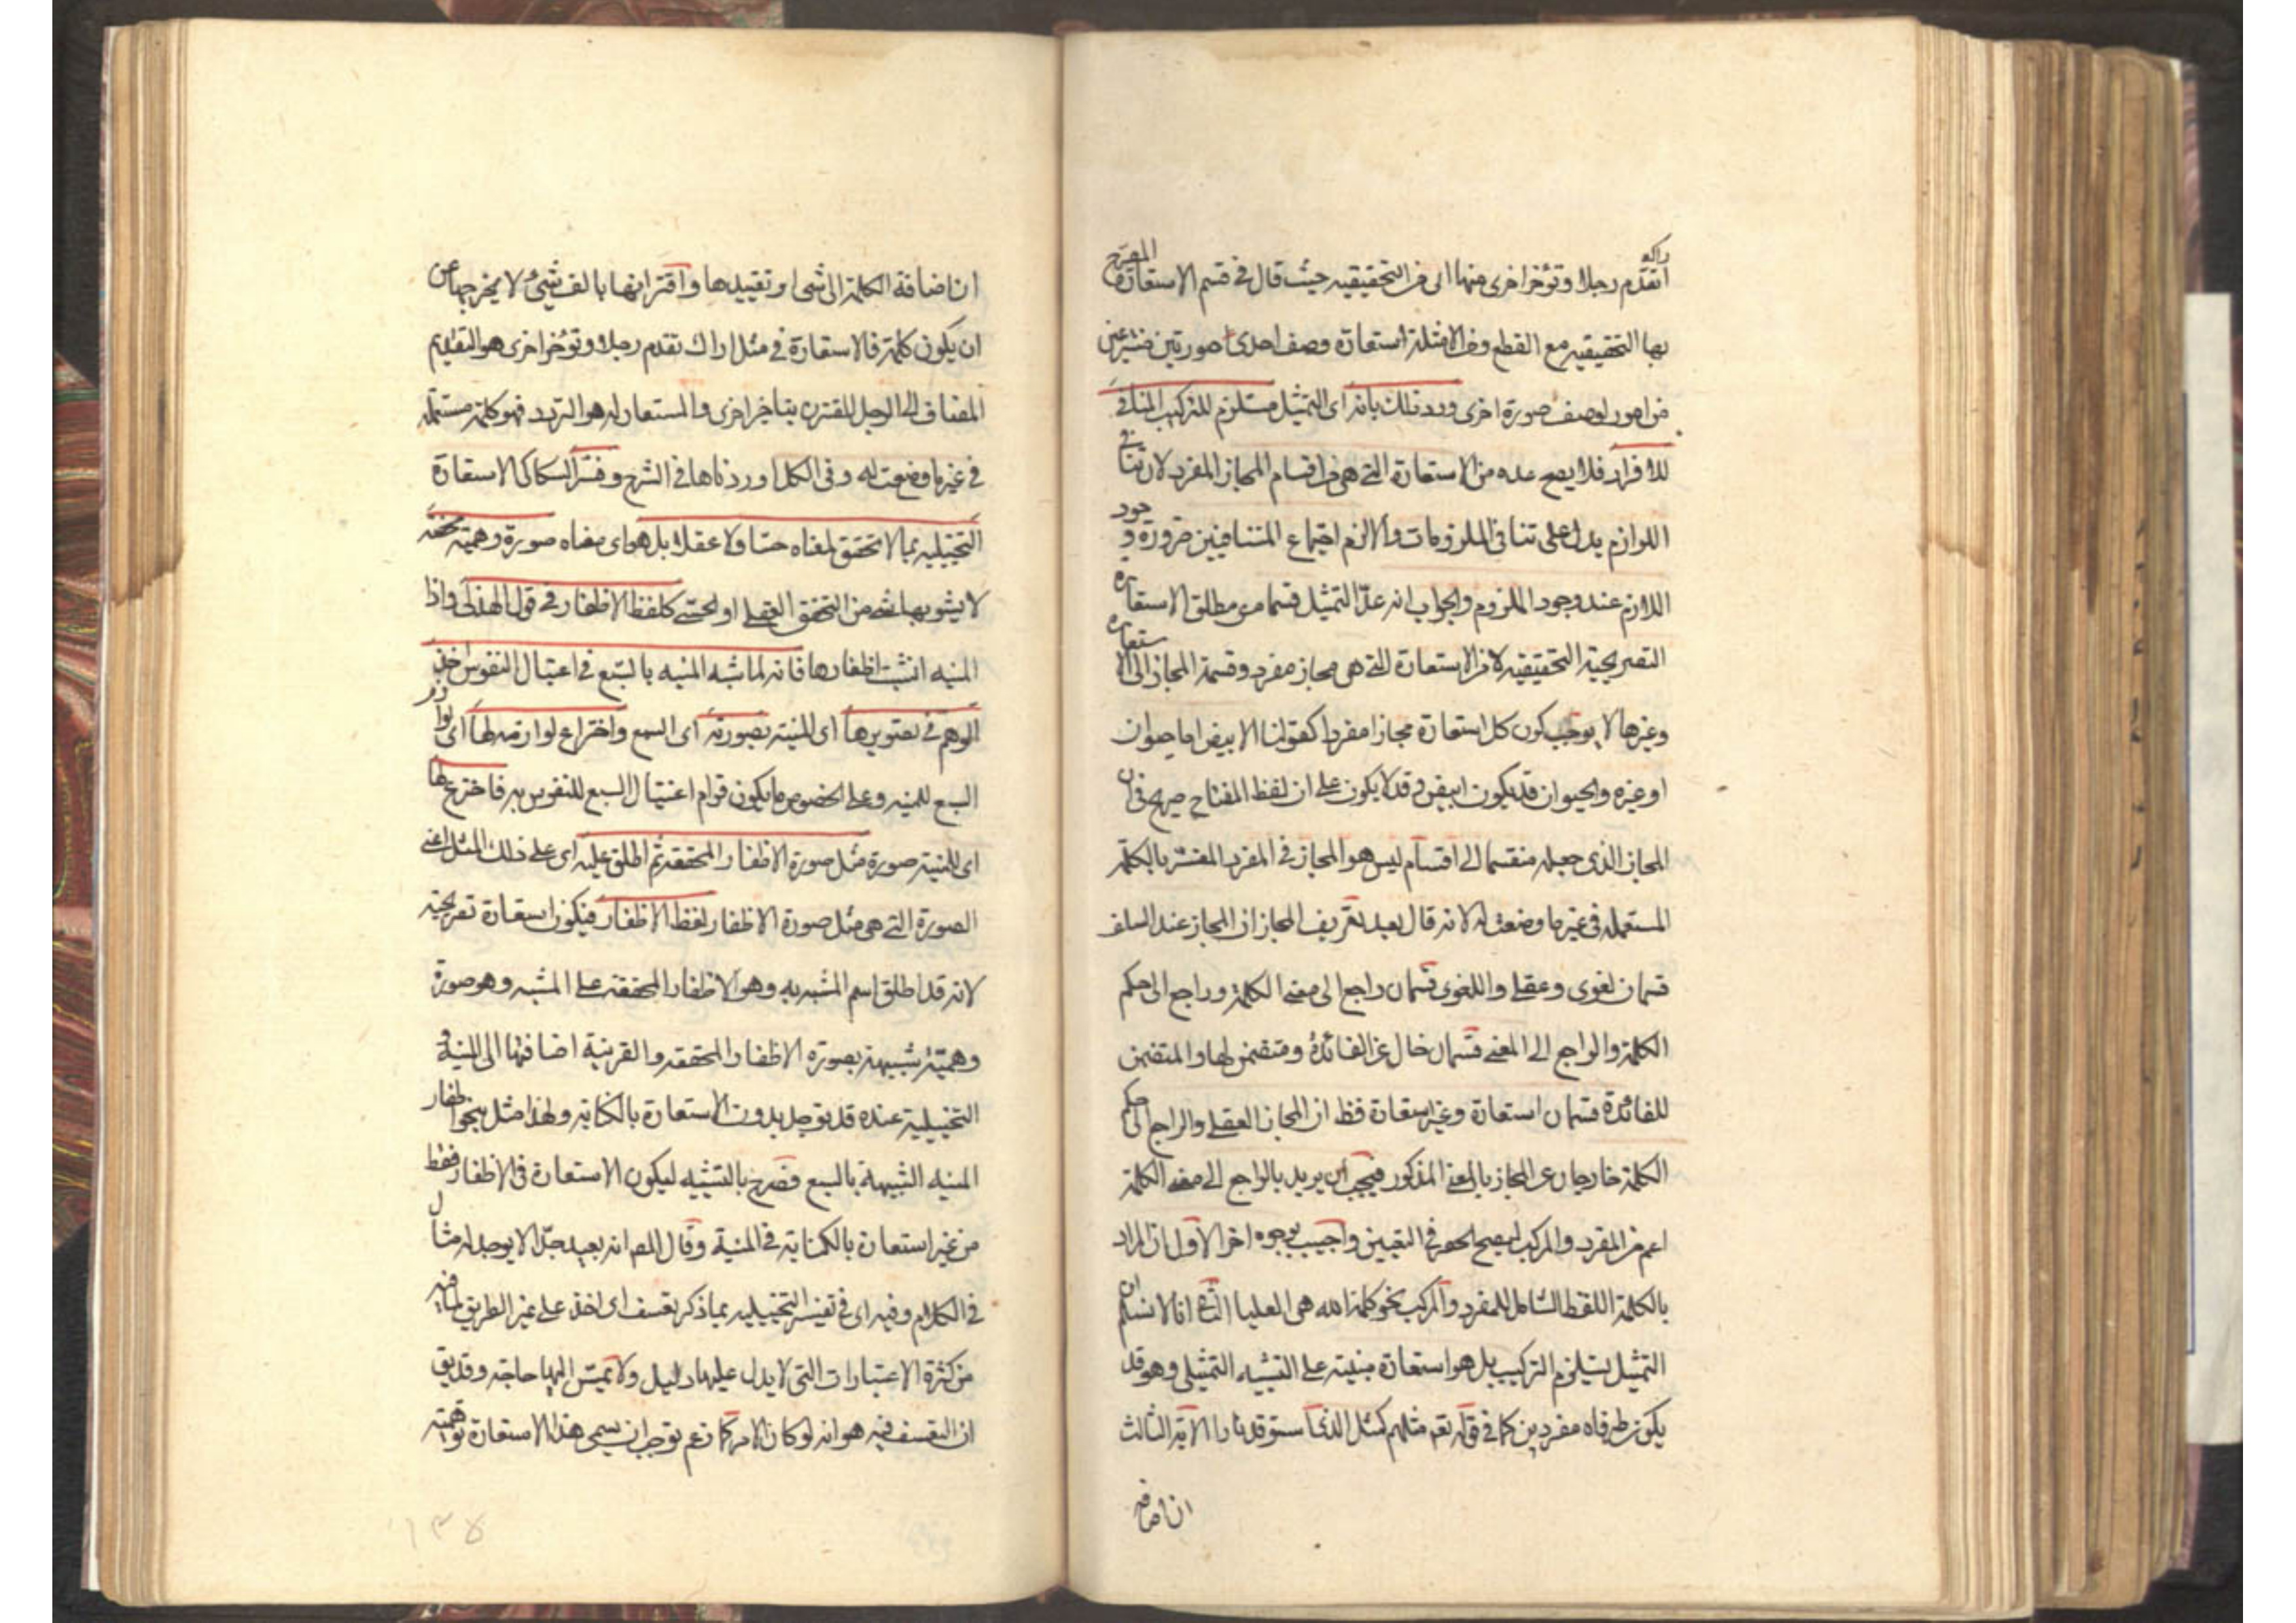 اراك تقدم رجلا وتؤخر اخرى منها اى من التحقيقيه حيث قال فى قسم الاستعارة المصرح
بها التحقيقيه مع القطع ومن الامثلة استعارة وصف احدى صورتين منتزعتين
من امور لوصف صورة اخرى ورد ذلك بانه اى التمثيل مستلزم للتركيب المنافى
للافراد فلا يصح عده من الاستعارة التى هى من اقسام المجاز المفرد لان تنافى
اللوازم يدل على تنافى الملزومات والا لزم اجتماع المتنافيين ضرورة وجود
اللازم عند وجود الملزوم والجواب انه عد التمثيل قسما من مطلق الاستعارة
التصريحية التحقيقيه لا من الاستعارة التى هى مجاز مفرد وقسمة المجاز الى الاستعارة
وغيرها لا يوجب كون كل استعارة مجازا مفردا كقولنا الابيض اما حيوان
او غيره والحيوان قد يكون ابيض وقد لا يكون على ان لفظ المفتاح صريح فى ان
المجاز الذى جعله منقسما الى اقسام ليس هو المجاز فى المفرد المفسر بالكلمة
المستعمله فى غير ما وضعت له لانه قال بعد تعريف المجاز ان المجاز عند السلف
قسمان لغوى وعقلى واللغوى قسمان راجع الى معنى الكلمة وراجع الى حكم
الكلمة والراجع الى المعنى قسمان خال عن الفائدة ومتضمن لها والمتضمن
للفائدة قسمان استعارة وغير استعارة فظ ان المجاز العقلى والراجع الى حكم
الكلمة خارجان عن المجاز بالمعنى المذكور فيجب ان يريد بالراجع الى معنى الكلمة
اعم من المفرد والمركب ليصح الحصر فى القسمين واجيب بوجوه اخر الاول ان المراد
بالكلمة اللفظ الشامل للمفرد والمركب نحو كلمة الله هى العليا الثانى انا لا نسلم ان
التمثيل يستلزم التركيب بل هو استعارة مبنية على التشبيه التمثيلى وهو قد
يكون طرفاه مفردين كما فى قوله تعم مثلهم كمثل الذى استوقد نارا الآية الثالث
ان اضافة
ان اضافة الكلمة الى شى او تقييدها واقترانها بالف شئ لا يخرجها عن
ان يكون كلمة فالاستعارة فى مثل اراك تقدم رجلا وتؤخر اخرى هو التقديم
المضاف الى الرجل المقترن بتاخير اخرى والمستعار له هو التردد فهو كلمة مستعملة
فى غير ما وضعت له وفى الكل اوردناها فى الشرح وفسر السكاكى الاستعارة
التخييليه بما لا تحقق لمعناه حسا ولا عقلا بل هو اى معناه صورة وهمية محضة
لا يشوبها شئ من التحقق العقلى او الحسى كلفظ الاظفار فى قول الهذلى واذا
المنيه انشبت اظفارها فانه لما شبه المنيه بالسبع فى اغتيال النفوس اخذ
الوهم فى تصويرها اى المنية بصورته اى السبع واختراع لوازمه لها اى لوازم
السبع للمنيه وعلى الخصوص ما يكون قوام اغتيال السبع للنفوس به فاخترع لها
اى للمنية صورة مثل صورة الاظفار المحققة ثم اطلق عليه اى على ذلك المثل اعنى
الصورة التى هى مثل صورة الاظفار لفظ الاظفار فيكون استعارة تصريحية
لانه قد اطلق اسم المشبه به وهو الاظفار المحققة على المشبه وهو صورة
وهمية شبيهة بصورة الاظفار المحققه والقرينة اضافتها الى المنية و
التخييلية عنده قد توجد بدون الاستعارة بالكناية ولهذا مثل بنحو اظفار
المنيه الشبيهة بالسبع فصرح بالتشبيه ليكون الاستعارة فى الاظفار فقط
من غير استعارة بالكناية فى المنية وقال المص انه بعيد جدا لا يوجد له مثال
فى الكلام وفيه اى فى تفسير التخييليه بما ذكر تعسف اى اخذ على غير الطريق لما فيه
من كثرة الاعتبارات التى لا يدل عليها دليل ولا تمس اليها حاجة وقد يق
ان التعسف فيه هو انه لو كان الامر كما زعم لوجب ان يسمى هذا الاستعارة توهمية
١٣٨